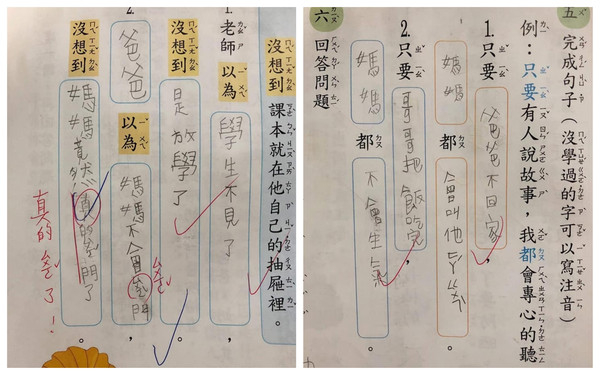 沒想到課本就在他自己的抽屜裡。
1.老師以為學生不見了，
沒想到是放學了。
2.爸爸以為媽媽不會門，
沒想到媽媽竟然真的門了。
真的了！
五 完成句子（沒學過的字可以寫注音）
例：只要有人說故事，我都會專心的聽
1.只要爸爸不回家，
媽媽都會叫他。
2.只要哥哥把飯吃完，
媽媽都不會生氣。
六 回答問題